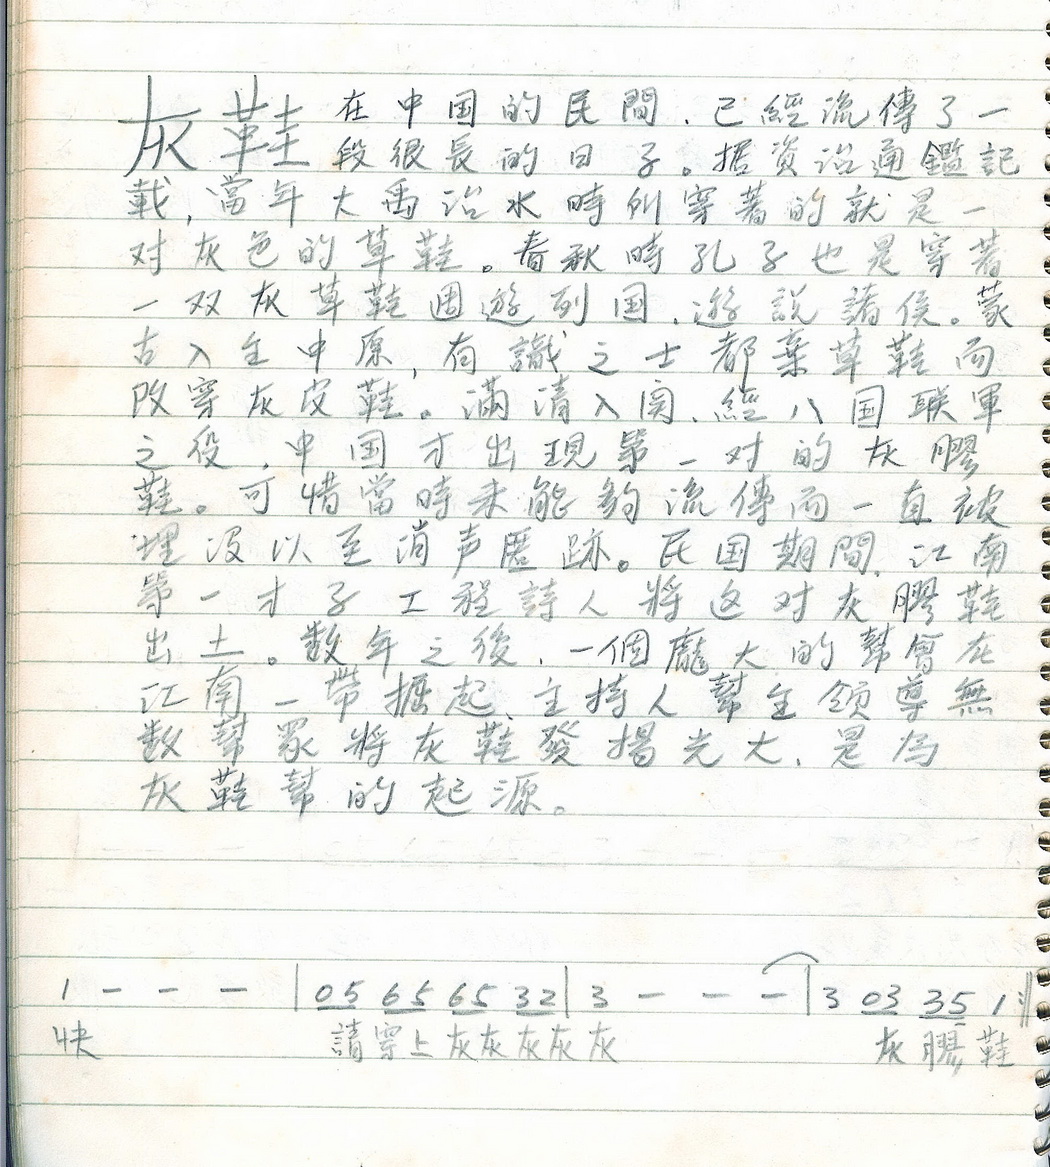 灰鞋在中国的民間，已經流傳了一
段很長的日子。据資治通鑑記
載，當年大禹治水時所穿著的就是一
对灰色的草鞋。春秋時孔子也是穿著
一双灰草鞋週遊列国，遊説諸侯。蒙
古入主中原，有識之士都棄草鞋而
改穿灰皮鞋。滿清入関，經八国联軍
之役，中国才出現第一对的灰膠
鞋。可惜當時未能夠流傳而一直被
埋没以至消声匿跡。民国期間，江南
第一才子工程詩人將这对灰膠鞋
出土。数年之後，一個龐大的幫會在
江南一帶掘起，主持人幫主領導無
数幫眾將灰鞋發揚光大，是為
灰鞋幫的起源。
1 - - - | 05 65 65 32 | 3 - - - | 3 03 35 1 :||
快 請穿上灰灰灰灰灰 灰膠鞋